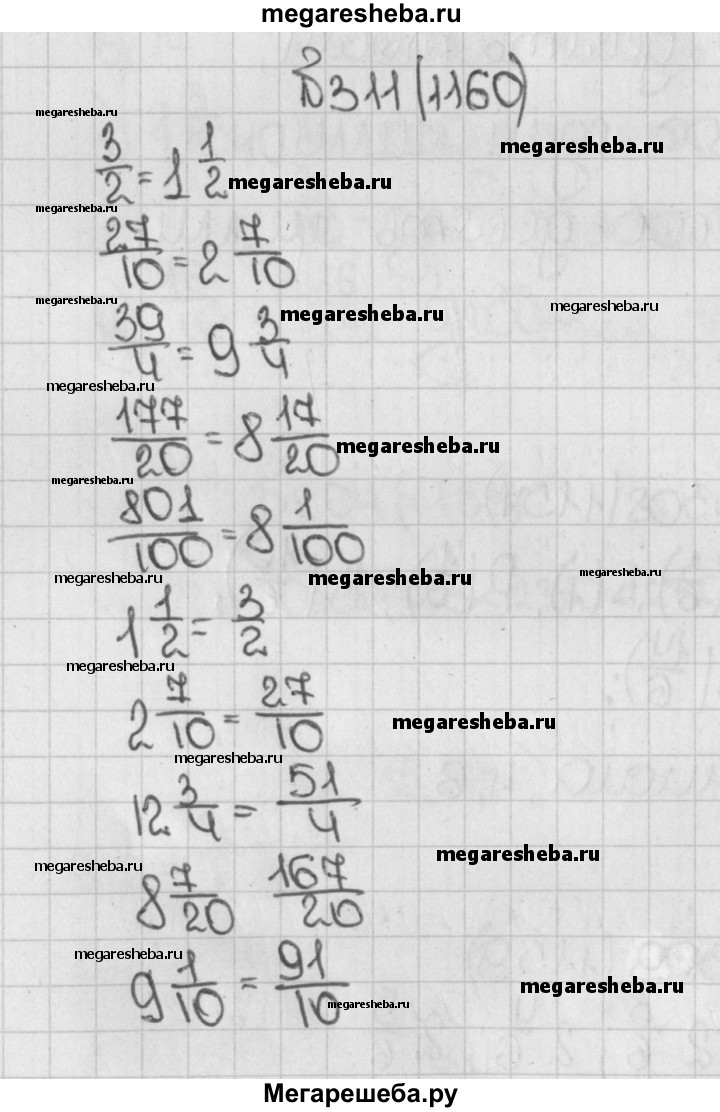 megaresheba.ru
№311(1160)
megaresheba.ru
megaresheba.ru
3/2 = 1 1/2
megaresheba.ru
megaresheba.ru
27/10 = 2 7/10
megaresheba.ru
megaresheba.ru
megaresheba.ru
39/4 = 9 3/4
megaresheba.ru
177/20 = 8 17/20
megaresheba.ru
megaresheba.ru
801/100 = 8 1/100
megaresheba.ru
megaresheba.ru
megaresheba.ru
1 1/2 = 3/2
megaresheba.ru
2 7/10 = 27/10
megaresheba.ru
megaresheba.ru
12 3/4 = 51/4
megaresheba.ru
megaresheba.ru
8 7/20 167/20
megaresheba.ru
9 1/10 = 91/10
megaresheba.ru
megaresheba.ru
Мегарешеба.ру